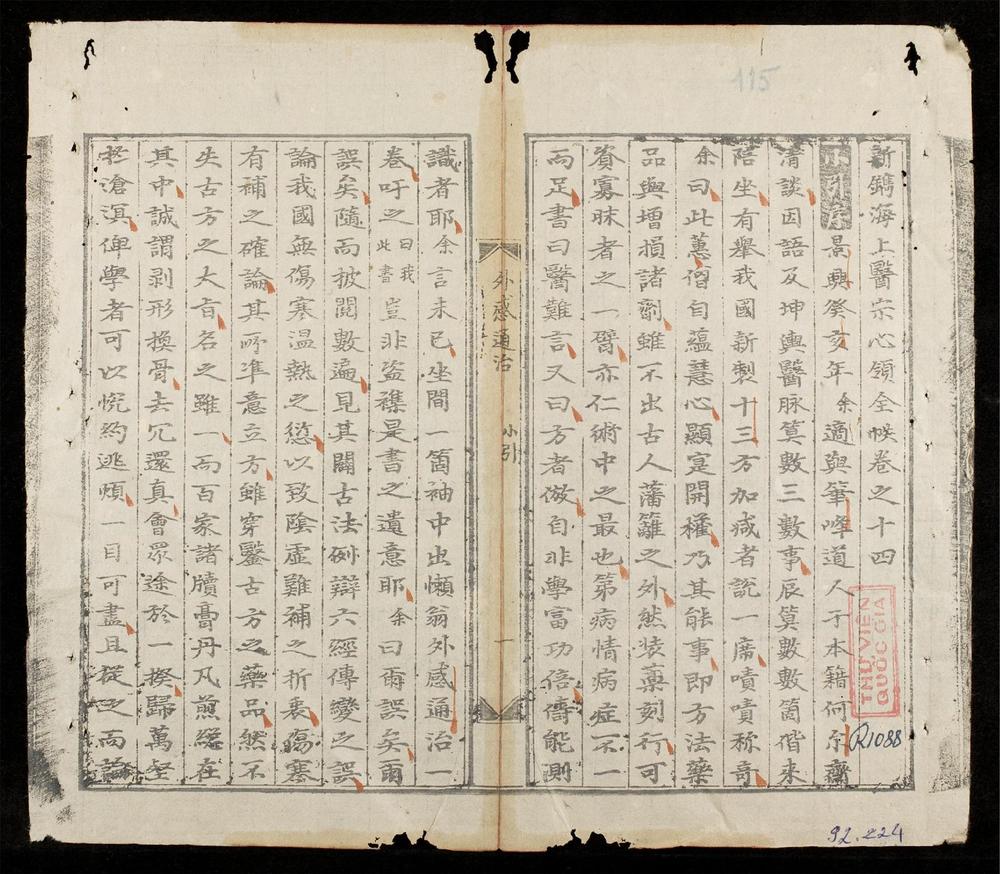 新鐫海上醫宗心領全帙卷之十四
小引 景興癸亥年余適與筆峰道人于本籍何尔齋
清談因語及坤輿醫脉算數三數事辰算數數箇偕來
陪坐有舉我國新製十三方加減者説一席嘖嘖称奇
余曰此蕙僧自蘊慧心顯寔開權乃其能事即方法藥
品與增損諸劑雖不出古人藩籬之外然裝藁刻行可
資寡昧者之一臂亦仁術中之最也第病情病症不一
而足書曰醫難言又曰方者倣自非學富功倍儔能則
外感通治 小引 一
識者耶余言未已坐間一箇袖中出懶翁外感通治一
卷吁之曰我此書豈非盗襍是書之遺意耶余曰爾誤矣爾
誤矣隨而披閱數遍見其闢古法例辯六經傳變之誤
論我國無傷寒温熱之愆以致陰虛難補之折衷傷寒
有補之確論其所準意立方雖穿鑿古方之藥品然不
失古方之大旨名之雖一而百家諸牘膏丹凡煎總在
其中誠謂剥形換骨去冗還真會眾途於一揆歸萬壑
於滄溟俾學者可以恍約逃煩一目可盡且從之而論
115
THƯ VIỆN
QUỐC GIA
R1088
92.224